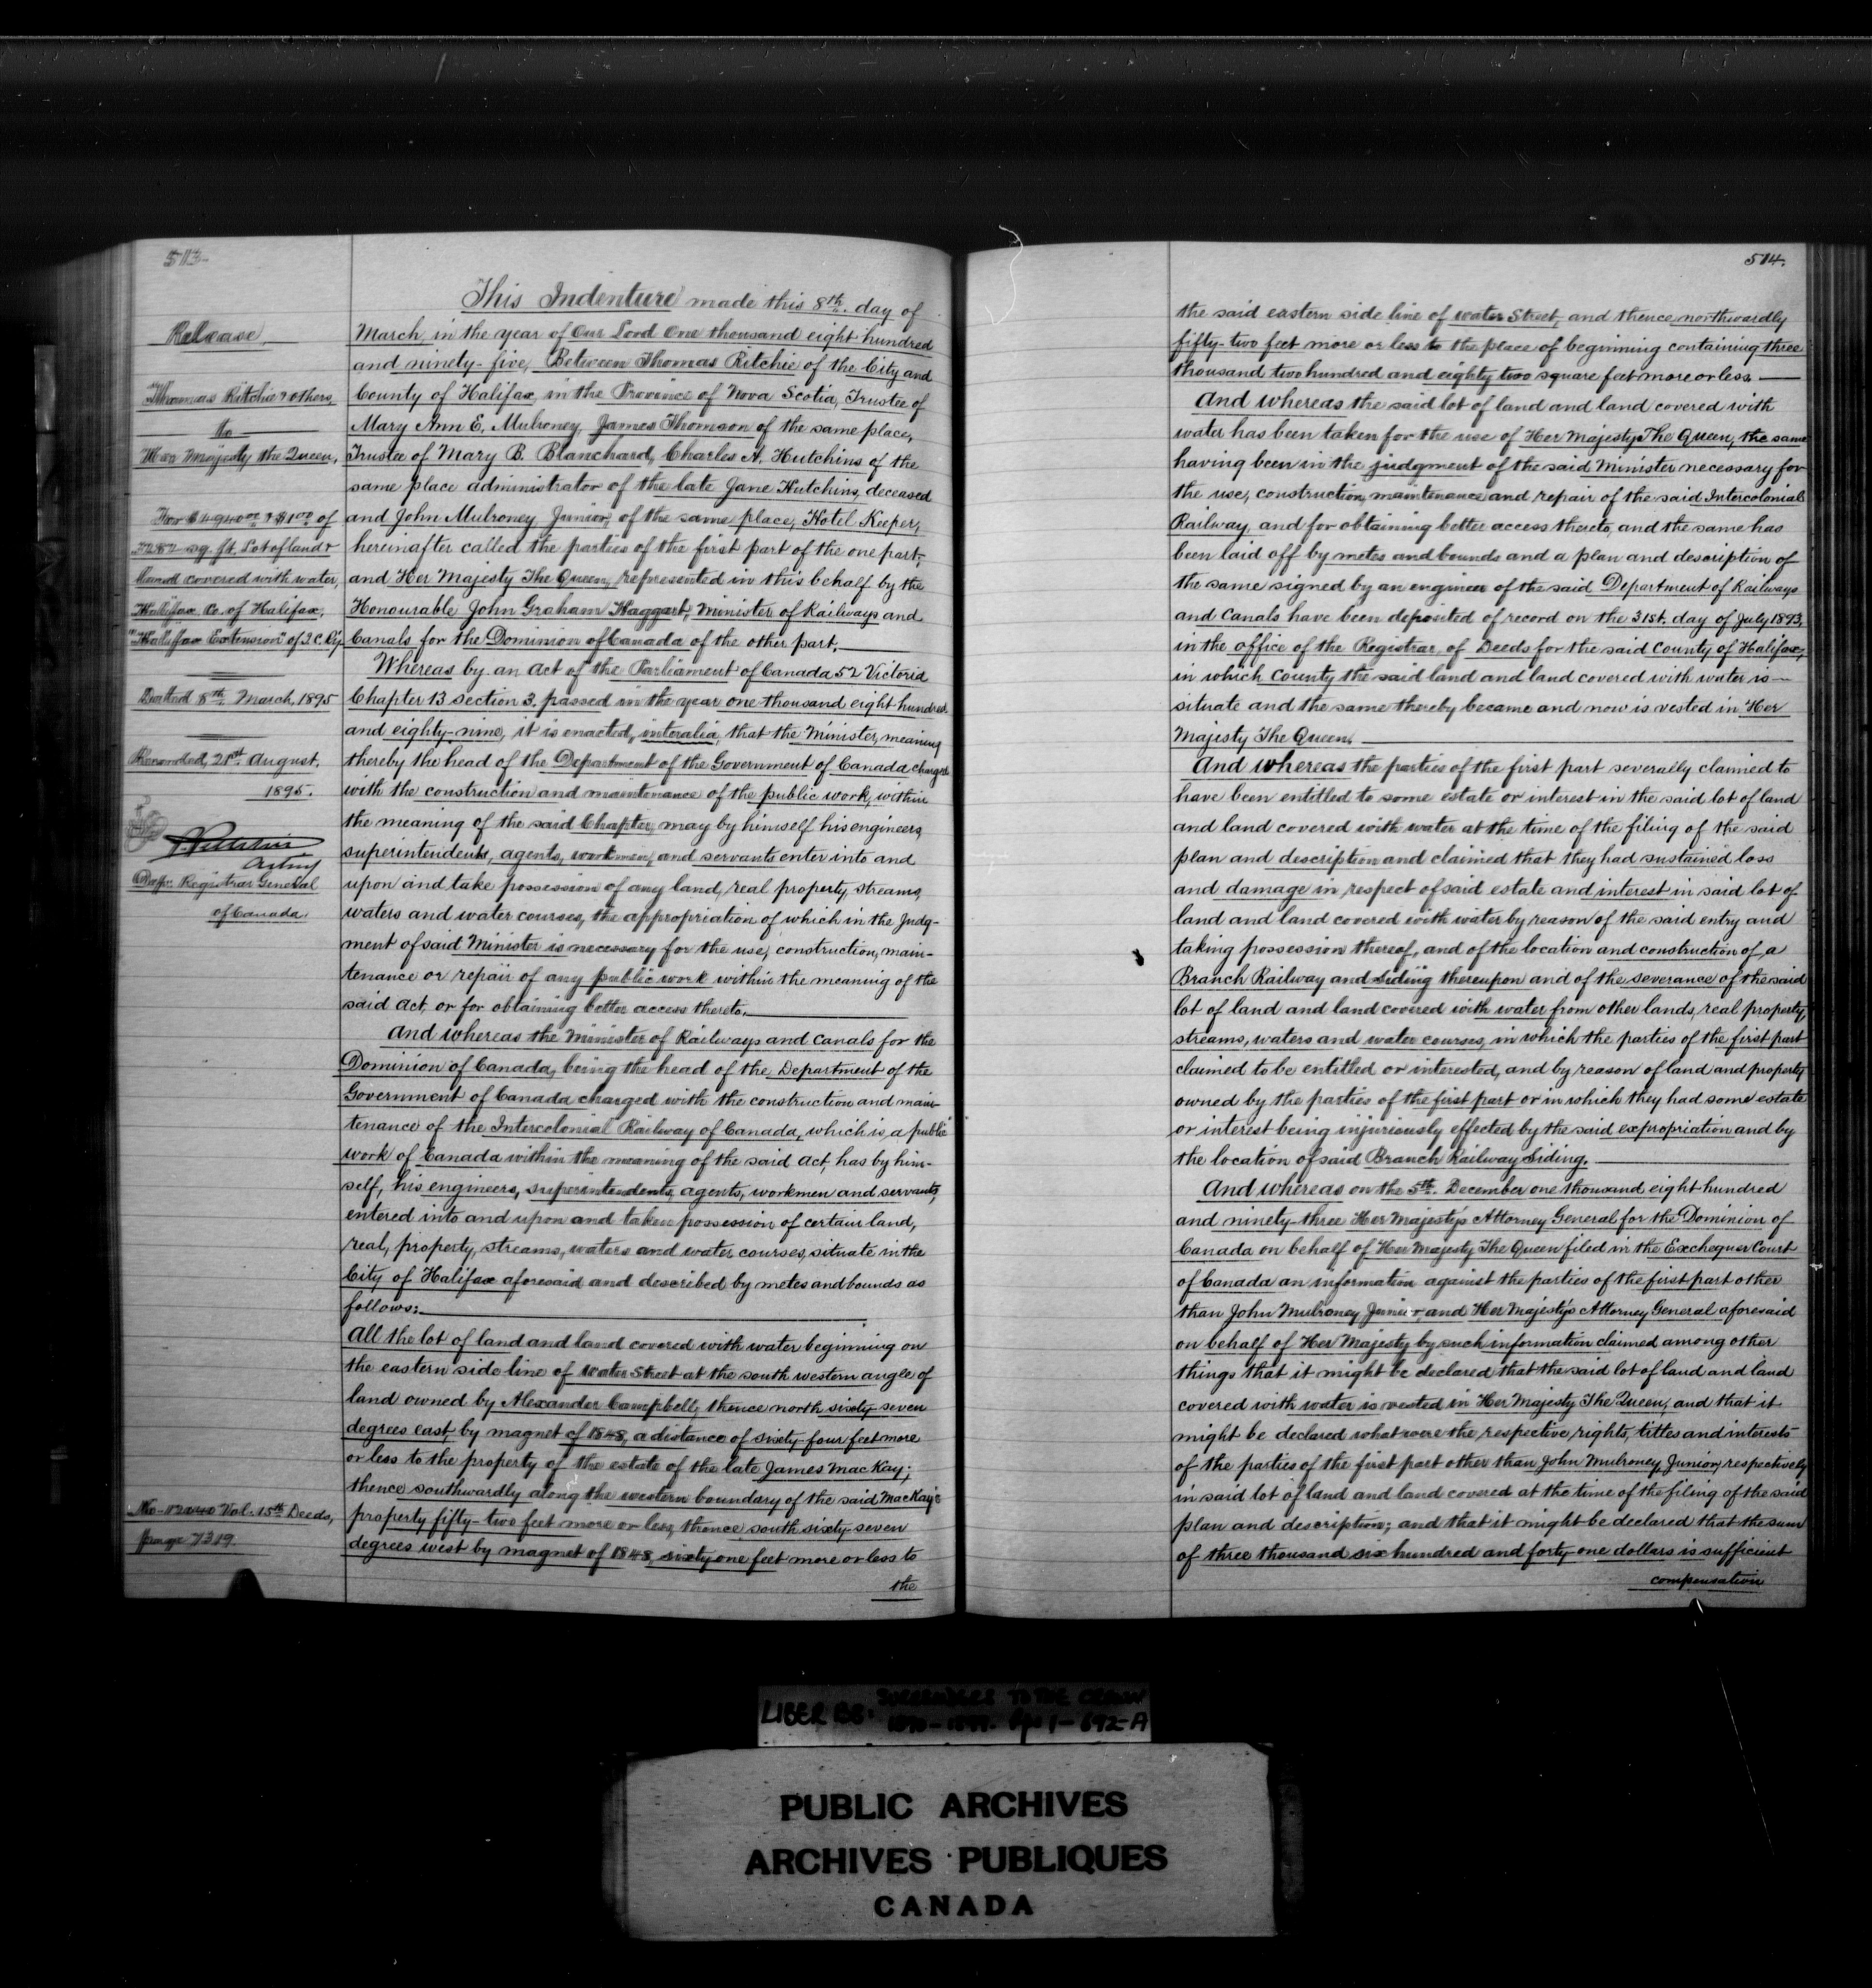 513.
Release
Thomas Ritchie & others,
to
Her Majesty the Queen,
For $4940.00 & $1.00 of
3282 sq. ft. Lot of land &
land covered with water,
Halifax Co. of Halifax,
"Halifax Extension" of I.C. Ry.
Dated 8th March, 1895
Recorded, 21st August,
1895.
Acting
Dep. Registrar General
of Canada.
Vol. 15th Deeds,
page 7319.
This Indenture made this 8th. day of
March, in the year of Our Lord One thousand eight hundred
and ninety-five, Between Thomas Ritchie of the City and
County of Halifax, in the Province of Nova Scotia, Trustee of
Mary Ann E. Mulroney, James Thomson of the same place,
Trustee of Mary B. Blanchard, Charles A. Hutchins of the
same place administrator of the late Jane Hutchins, deceased
and John Mulroney Junior, of the same place, Hotel Keeper,
hereinafter called the parties of the first part of the one part,
and Her Majesty The Queen, represented in this behalf by the
Honourable John Graham Haggart, Minister of Railways and
Canals for the Dominion of Canada of the other part.
Whereas by an Act of the Parliament of Canada 52 Victoria
Chapter 13 section 3, passed in the year one thousand eight hundred
and eighty-nine, it is enacted, interalia, that the Minister, meaning
thereby the head of the Department of the Government of Canada charged
with the construction and maintenance of the public work, within
the meaning of the said Chapter, may by himself his engineers,
superintendents, agents, workmen, and servants enter into and
upon and take possession of any land, real property, streams,
waters and water courses, the appropriation of which in the Judg-
ment of said Minister is necessary for the use, construction, main-
tenance or repair of any public work within the meaning of the
said Act, or for obtaining better access thereto.
And whereas the Minister of Railways and Canals for the
Dominion of Canada, being the head of the Department of the
Government of Canada charged with the construction and main-
tenance of the Intercolonial Railway of Canada, which is a public
work of Canada within the meaning of the said Act, has by him-
self, his engineers, superintendents, agents, workmen and servants,
entered into and upon and taken possession of certain land,
real, property, streams, waters and water courses, situate in the
City of Halifax aforesaid and described by metes and bounds as
follows:
All the lot of land and land covered with water beginning on
the eastern side line of Water Street at the south western angle of
land owned by Alexander Campbell, thence north sixty-seven
degrees east by magnet of 1848, a distance of sixty-four feet more
or less to the property of the estate of the late James MacKay;
thence southwardly along the western boundary of the said MacKay's
property fifty-two feet more or less, thence south sixty-seven
degrees west by magnet of 1848, sixty one feet more or less to
the
514.
the said eastern side line of Water Street, and thence northwardly
fifty-two feet more or less to the place of beginning containing three
thousand two hundred and eighty two square feet more or less
And whereas the said lot of land and land covered with
water has been taken for the use of Her Majesty The Queen, the same
having been in the judgment of the said Minister necessary for
the use, construction, maintenance and repair of the said Intercolonial
Railway, and for obtaining better access thereto, and the same has
been laid off by metes and bounds and a plan and description of
the same signed by an engineer of the said Department of Railways
and Canals have been deposited of record on the 31st. day of July 1893,
in the office of the Registrar of Deeds for the said County of Halifax,
in which County the said land and land covered with water is
situate and the same thereby became and now is vested in Her
Majesty The Queen.
And whereas the parties of the first part severally claimed to
have been entitled to some estate or interest in the said lot of land
and land covered with water at the time of the filing of the said
plan and description and claimed that they had sustained loss
and damage in respect of said estate and interest in said lot of
land and land covered with water by reason of the said entry and
taking possession thereof, and of the location and construction of a
Branch Railway and Siding thereupon and of the severance of the said
lot of land and land covered with water from other lands, real property,
streams, waters and water courses, in which the parties of the first part
claimed to be entitled or interested, and by reason of land and property
owned by the parties of the first part or in which they had some estate
or interest being injuriously effected by the said expropriation and by
the location of said Branch Railway Siding.
And whereas on the 5th. December one thousand eight hundred
and ninety-three Her Majesty's Attorney General for the Dominion of
Canada on behalf of Her Majesty The Queen filed in the Exchequer Court
of Canada an information against the parties of the first part other
than John Mulroney Junior, and Her Majesty's Attorney General aforesaid
on behalf of Her Majesty by such information claimed among other
things that it might be declared that the said lot of land and land
covered with water is vested in Her Majesty The Queen, and that it
might be declared what were the respective rights, titles and interests
of the parties of the first part other than John Mulroney, Junior, respectively
in said lot of land and land covered at the time of the filing of the said
plan and description; and that it might be declared that the sum
of three thousand six hundred and forty-one dollars is sufficient
compensation
LIBER BB: SURRENDERS TO THE CROWN
Pgs 1-692-A
PUBLIC ARCHIVES
ARCHIVES PUBLIQUES
CANADA